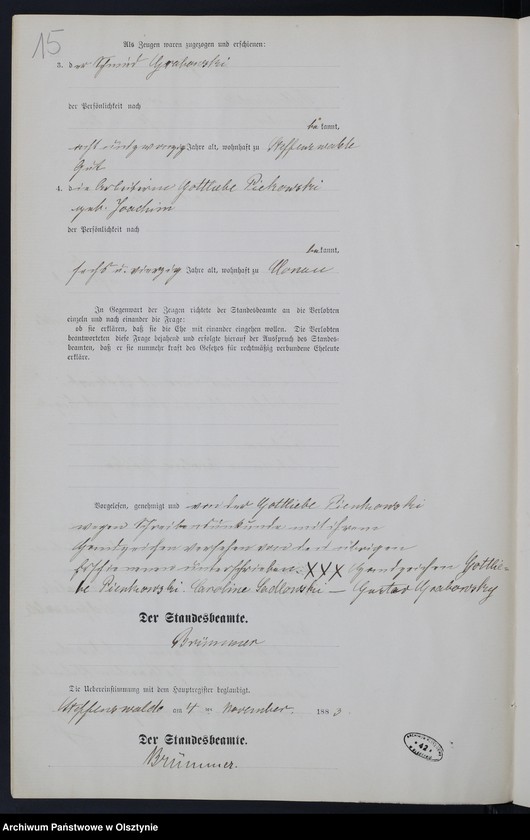 15
Als Zeugen waren zugezogen und erschienen:
3. der Schmied Grabowski
der Persönlichkeit nach
be kannt,
acht und zwanzig Jahre alt, wohnhaft zu Steffenswalde
Gut
4. die Arbeiterin Gottliebe Piekowski
geb. Joachim
der Persönlichkeit nach
be kannt,
sechs u. vierzig Jahre alt, wohnhaft zu
In Gegenwart der Zeugen richtete der Standesbeamte an die Verlobten
einzeln und nach einander die Frage:
ob sie erklären, daß sie die Ehe mit einander eingehen wollen. Die Verlobten
beantworteten diese Frage bejahend und erfolgte hierauf der Ausspruch des Standes-
beamten, daß er sie nunmehr kraft des Gesetzes für rechtmäßig verbundene Eheleute
erkläre.
Vorgelesen, genehmigt und von der Gottliebe Pienkowski
wegen Schreibensunkunde mit ihrem
Handzeichen versehen von den übrigen
Erschienenen unterschrieben. XXX Handzeichen Gottlie-
be Pienkowski. Caroline Sadlowski – Gustav Grabowsky
Der Standesbeamte.
Brümmer
Die Uebereinstimmung mit dem Hauptregister beglaubigt.
Steffenswalde am 4 ten November. 188 3.
Der Standesbeamte.
Brümmer.
42
Archiwum Państwowe w Olsztynie